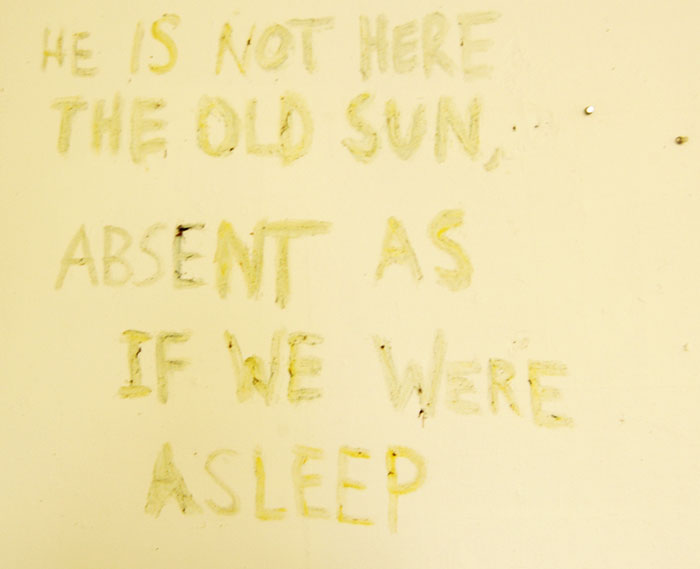 HE IS NOT HERE
THE OLD SUN,
ABSENT AS
IF WE WERE
ASLEEP